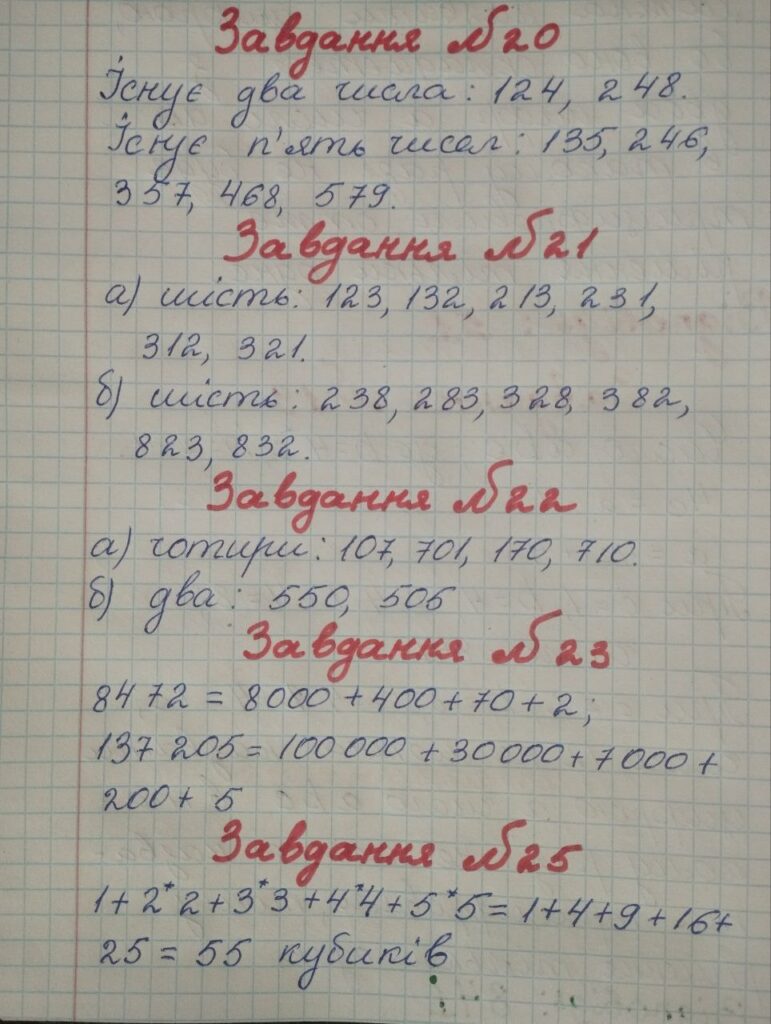 Завдання №20
Існує два числа: 124, 248.
Існує п'ять чисел: 135, 246,
357, 468, 579.
Завдання №21
а) шість: 123, 132, 213, 231,
312, 321.
б) шість: 238, 283, 328, 382,
823, 832.
Завдання №22
а) чотири: 107, 701, 170, 710.
б) два: 550, 505
Завдання №23
8472 = 8000 + 400 + 70 + 2;
137 205 = 100 000 + 30000 + 7000 +
200 + 5
Завдання №25
1 + 2*2 + 3*3 + 4*4 + 5*5 = 1+4+9+16+
25 = 55 кубиків